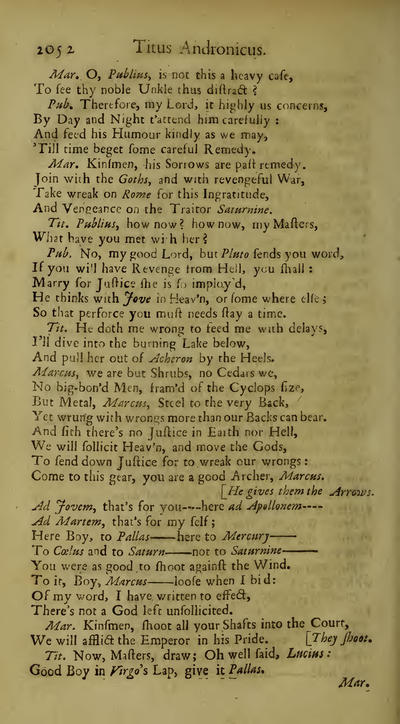 2052 Titus Andronicus.
Mar. O, Publius, is not this a heavy caſe,
To ſee thy noble Unkle thus diſtract ?
Pub. Therefore, my Lord, it highly us concerns,
By Day and Night t'attend him carefully :
And feed his Humour kindly as we may,
'Till time beget ſome careful Remedy.
Mar. Kinſmen, his Sorrows are paſt remedy.
Join with the Goths, and with revengeful War,
Take wreak on Rome for this Ingratitude,
And Vengeance on the Traitor Saturnine.
Tit. Publius, how now? how now, my Maſters,
What have you met with her ?
Pub. No, my good Lord, but Pluto ſends you word,
If you will have Revenge from Hell, you ſhall :
Marry for Juſtice ſhe is ſo imploy'd,
He thinks with Jove in Heav'n, or ſome where elſe ;
So that perforce you muſt needs ſtay a time.
Tit. He doth me wrong to feed me with delays,
I'll dive into the burning Lake below,
And pull her out of Acheron by the Heels.
Marcus, we are but Shrubs, no Cedars we,
No big-bon'd Men, fram'd of the Cyclops ſize,
But Metal, Marcus, Steel to the very Back,
Yet wrung with wrongs more than our Backs can bear.
And ſith there's no Juſtice in Earth nor Hell,
We will ſollicit Heav'n, and move the Gods,
To ſend down Juſtice for to wreak our wrongs :
Come to this gear, you are a good Archer, Marcus.
[He gives them the Arrows.
Ad Jovem, that's for you----here ad Apollonem----
Ad Martem, that's for my ſelf ;
Here Boy, to Pallas——here to Mercury——
To Cœlus and to Saturn——not to Saturnine——
You were as good to ſhoot againſt the Wind.
To it, Boy, Marcus——looſe when I bid :
Of my word, I have written to effect,
There's not a God left unſollicited.
Mar. Kinſmen, ſhoot all your Shafts into the Court,
We will afflict the Emperor in his Pride. [They ſhoot.
Tit. Now, Maſters, draw; Oh well ſaid, Lucius :
Good Boy in Virgo's Lap, give it Pallas.
Mar.